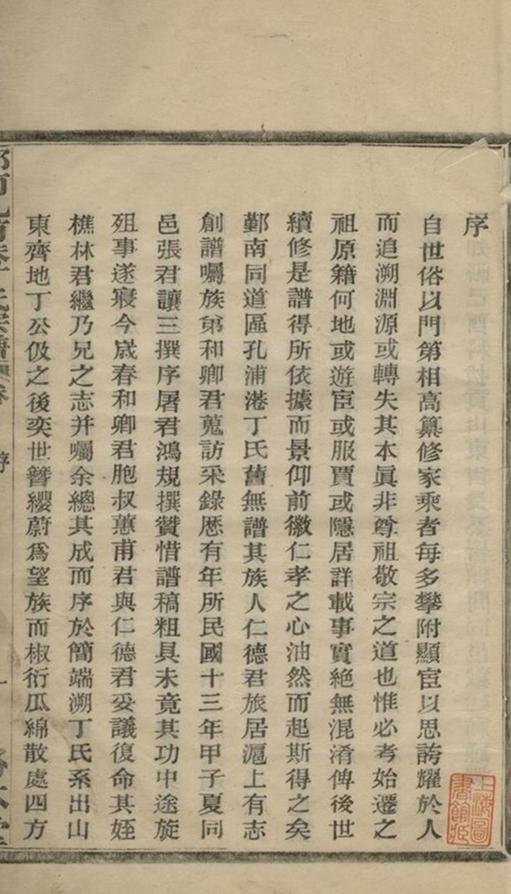 序
自世俗以門第相高纂修家乘者每多攀附顯宦以思誇耀於人
而追溯淵源或轉失其本眞非尊祖敬宗之道也惟必考始遷之
祖原籍何地或遊宦或服賈或隱居詳載事實絶無混淆俾後世
續修是譜得所依據而景仰前徽仁孝之心油然而起斯得之矣
鄞南同道區孔浦港丁氏舊無譜其族人仁德君旅居滬上有志
創譜囑族弟和卿君蒐訪采錄歷有年所民國十三年甲子夏同
邑張君讓三撰序屠君鴻規撰贊惜譜稿粗具未竟其功中途旋
殂事遂寢今嵗春和卿君胞叔蕙甫君與仁德君妥議復命其姪
樵林君繼乃兄之志并囑余總其成而序於簡端溯丁氏系出山
東齊地丁公伋之後奕世簪纓蔚爲望族而椒衍瓜綿散處四方
序
一
上海圖書館藏